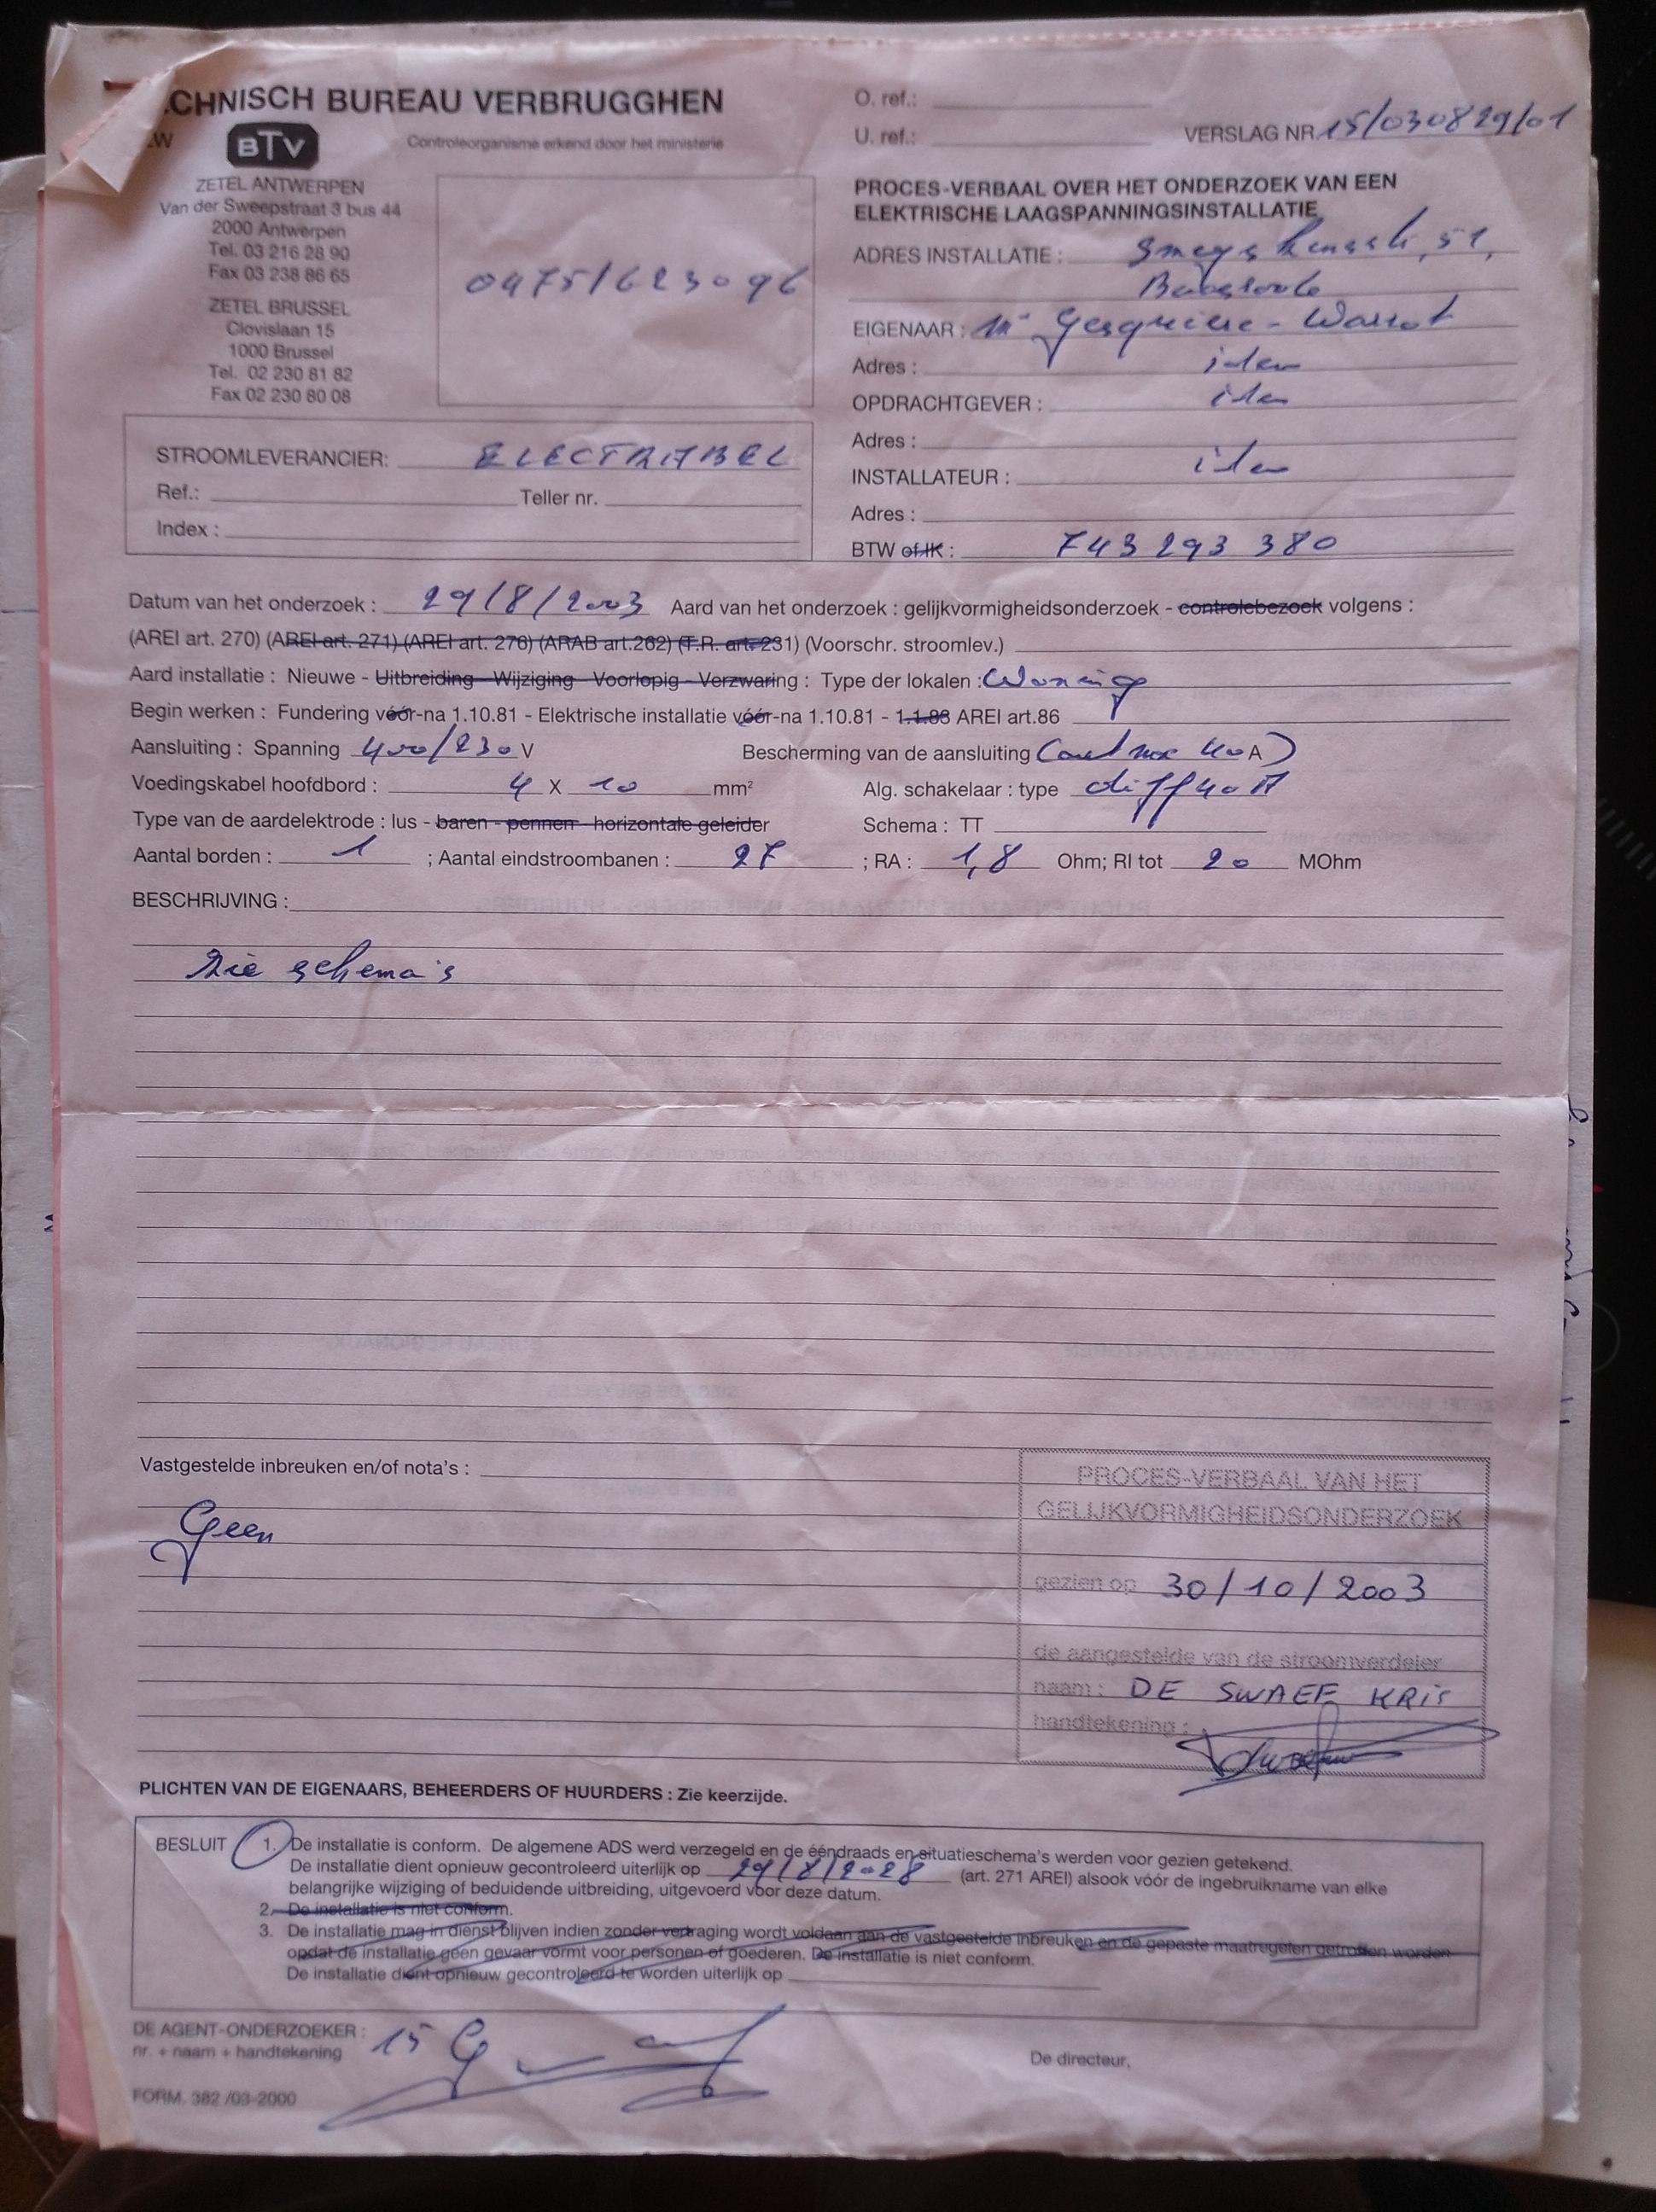 CHNISCH BUREAU VERBRUGGHEN
BTV
Controleorganisme erkend door het ministerie
ZETEL ANTWERPEN
Van der Sweepstraat 3 bus 44
2000 Antwerpen
Tel. 03 216 28 90
Fax 03 238 86 65
ZETEL BRUSSEL
Clovislaan 15
1000 Brussel
Tel. 02 230 81 82
Fax 02 230 80 08
0475/623096
O. ref.:
U. ref.:
VERSLAG NR 15/030829/01
PROCES-VERBAAL OVER HET ONDERZOEK VAN EEN
ELEKTRISCHE LAAGSPANNINGSINSTALLATIE
ADRES INSTALLATIE : 51,
EIGENAAR :
Adres : idem
OPDRACHTGEVER : idem
Adres :
INSTALLATEUR : idem
Adres :
BTW of IK : 743 293 380
STROOMLEVERANCIER: ELECTRABEL
Ref.: Teller nr.
Index :
Datum van het onderzoek : 29/8/2003 Aard van het onderzoek : gelijkvormigheidsonderzoek - controlebezoek volgens :
(AREI art. 270) (AREI art. 271) (AREI art. 276) (ARAB art.262) (T.R. art. 231) (Voorschr. stroomlev.)
Aard installatie : Nieuwe - Uitbreiding - Wijziging - Voorlopig - Verzwaring : Type der lokalen : Woning
Begin werken : Fundering vóór-na 1.10.81 - Elektrische installatie vóór-na 1.10.81 - 1.1.83 AREI art.86
Aansluiting : Spanning 400/230 V Bescherming van de aansluiting (aut max 40 A)
Voedingskabel hoofdbord : 4 X 10 mm² Alg. schakelaar : type diff 40 A
Type van de aardelektrode : lus - baren - pennen - horizontale geleider Schema : TT
Aantal borden : 1 ; Aantal eindstroombanen : 27 ; RA : 1,8 Ohm; RI tot 20 MOhm
BESCHRIJVING :
Zie schema's
Vastgestelde inbreuken en/of nota's :
Geen
PROCES-VERBAAL VAN HET
GELIJKVORMIGHEIDSONDERZOEK
gezien op 30/10/2003
de aangestelde van de stroomverdeler
naam : DE SWAEF KRIS
handtekening :
PLICHTEN VAN DE EIGENAARS, BEHEERDERS OF HUURDERS : Zie keerzijde.
BESLUIT 1. De installatie is conform. De algemene ADS werd verzegeld en de ééndraads en situatieschema's werden voor gezien getekend.
De installatie dient opnieuw gecontroleerd uiterlijk op 29/8/2028 (art. 271 AREI) alsook vóór de ingebruikname van elke
belangrijke wijziging of beduidende uitbreiding, uitgevoerd voor deze datum.
2. De installatie is niet conform.
3. De installatie mag in dienst blijven indien zonder vertraging wordt voldaan aan de vastgestelde inbreuken en de gepaste maatregelen getroffen worden
opdat de installatie geen gevaar vormt voor personen of goederen. De installatie is niet conform.
De installatie dient opnieuw gecontroleerd te worden uiterlijk op
DE AGENT-ONDERZOEKER : 15
nr. + naam + handtekening
De directeur,
FORM. 382 /03-2000